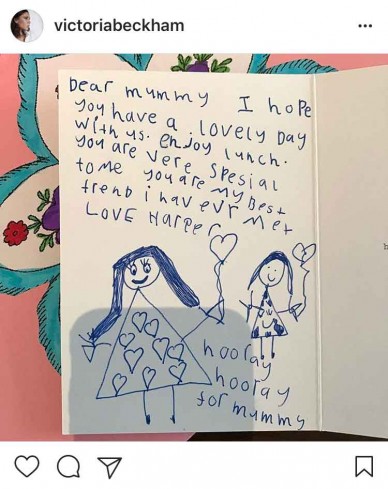 victoriabeckham
Dear mummy I hope
you have a lovely Day
with us. enjoy lunch.
you are vere spesial
to me you are my best
frend i hav evr met
LOVE Harper
hooray
hooray
for mummy